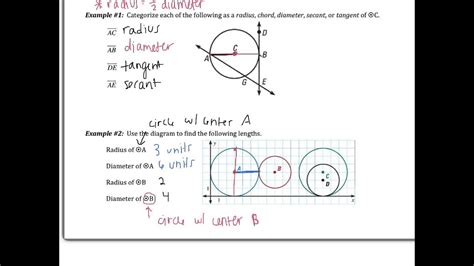 * radius = ½ diameter
Example #1: Categorize each of the following as a radius, chord, diameter, secant, or tangent of ⊙C.
AC radius
AB diameter
DE tangent
AE secant
D
A C B
G E
circle w/ center A
Example #2: Use the diagram to find the following lengths.
Radius of ⊙A 3 units
Diameter of ⊙A 6 units
Radius of ⊙B 2
Diameter of ⊙B 4
circle w/ center B
y
A B C
D
1
1 x